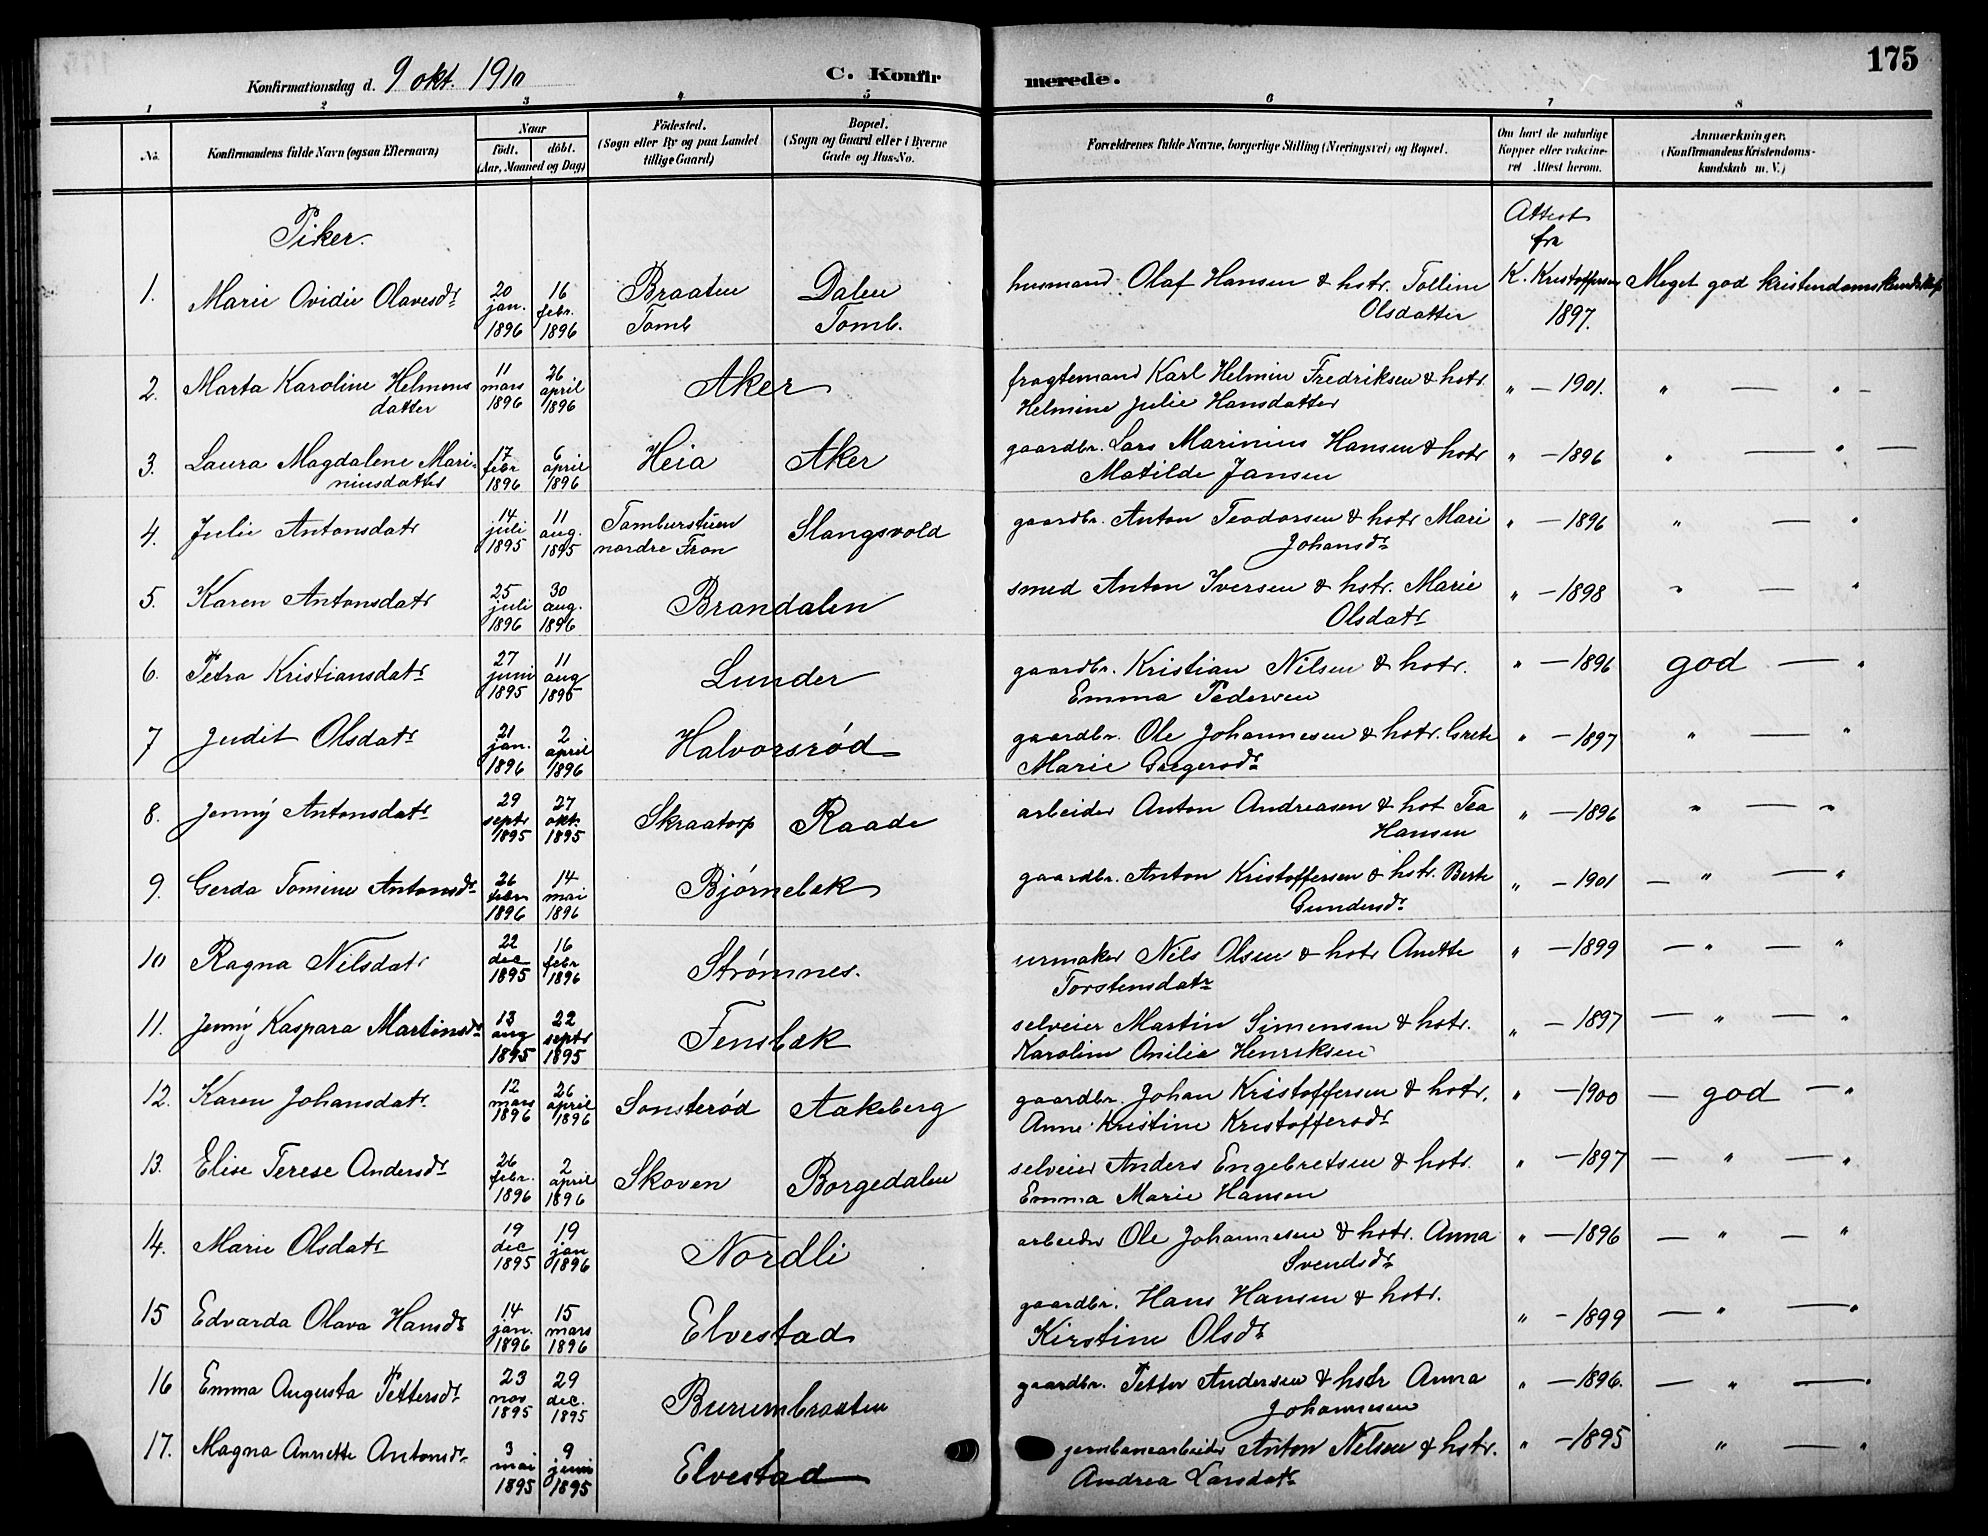 175
Konfirmationsdag d. 9 okt. 1910 C. Konfirmerede.
1 2 3 4 5 6 7 8
No. Konfirmandens fulde Navn (ogsaa Efternavn) Naar födt. döbt. (Aar, Maaned og Dag) Födested. (Sogn eller By og paa Landet tillige Gaard) Bopæl. (Sogn og Gaard eller i Byerne Gade og Hus-No. Forældrenes fulde Navne, borgerlige Stilling (Næringsvei) og Bopæl. Om havt de naturlige Kopper eller vakcineret Attest herom. Anmærkninger. (Konfirmandens Kristendomskundskab m. V.)
Piker. Attest fra
1. Marie Ovidie Olavesdr 20 jan. 1896 16 febr. 1896 Braaten Tomb Dalen Tomb. husmand Olaf Hansen & hstr. Tolline Olsdatter K. Kristoffersen 1897. Meget god kristendomskundskap
2. Marta Karoline Helmensdatter 11 mars 1896 26 april 1896 Aker fragtemand Karl Helmin Fredriksen & hstr. Helmine Julie Hansdatter " — 1901. " — " —
3. Laura Magdalene Mariniusdatter 17 febr 1896 6 april 1896 Heia Aker gaardbr. Lars Marinius Hansen & hstr Matilde Jansen " — 1896 " — " —
4. Julie Antonsdatr 14 juli 1895 11 aug. 1895 Tomburstuen nordre Fron Slangsvold gaardbr. Anton Teodorsen & hstr Mari Johansdr " — 1896 " — "
5. Karen Antonsdatr 25 juli 1896 30 aug. 1896 Brandalen smed Anton Iversen & hstr. Marie Olsdatr " — 1898 " — "
6. Petra Kristiansdatr 27 juni 1895 11 aug 1895 Lunder gaardbr. Kristian Nilsen & hstr. Emma Pedersen " — 1896 god — "
7 Judit Olsdatr 21 jan. 1896 2 april 1896 Halvorsrød gaardbr. Ole Johannesen & hstr. Grete Marie Gregersdr " — 1897 " — "
8. Jenny Antonsdatr 29 septr 1895 27 okt. 1895 Skraatorp Raade arbeider Anton Andreasen & hst Tea Hansen " — 1896 " — "
9. Gerda Tomine Antonsdr 26 febr 1896 14 mai 1896 Bjørnebæk gaardbr. Anton Kristoffersen & hstr. Berte Gundersdr " — 1901 — " — "
10 Ragna Nilsdatr 22 dec 1895 16 febr 1896 Strømnes. urmaker Nils Olsen & hstr Anette Torstensdatr " — 1899 — " — "
11. Jenny Kaspara Martinsdr 13 aug 1895 22 septr 1895 Fensbæk selveier Martin Simensen & hstr. Karoline Onilie Henriksen " — 1897 — " — "
12. Karen Johansdatr 12 mars 1896 26 april 1896 Sonsterød Aakeberg gaardbr. Johan Kristoffersen & hstr. Anne Kristine Kristoffersdr " — 1900 — god — "
13. Elise Terese Andersdr 26 febr. 1896 2 april 1896 Skoven Borgedalen selveier Anders Engebretsen & hstr. Emma Marie Hansen " — 1897 — " — "
14. Marie Olsdatr 19 dec 1895 19 jan 1896 Nordli arbeider Ole Johannesen & hstr. Anna Svendsdr " — 1896 — " — "
15 Edvarda Olava Hansdr 14 jan. 1896 15 mars 1896 Elvestad gaardbr. Hans Hansen & hstr. Kirstine Olsdr " — 1899 — " — "
16 Emma Augusta Pettersdr 23 nov 1895 29 dec. 1895 Burumbraaten gaardbr. Petter Andersen & hstr Anna Johannesen " — 1896. — " — "
17. Magna Annette Antonsdr 3 mai 1895 9 juni 1895 Elvestad jernbanearbeider Anton Nelsen & hstr. Andrea Larsdatr " — 1895 " — "